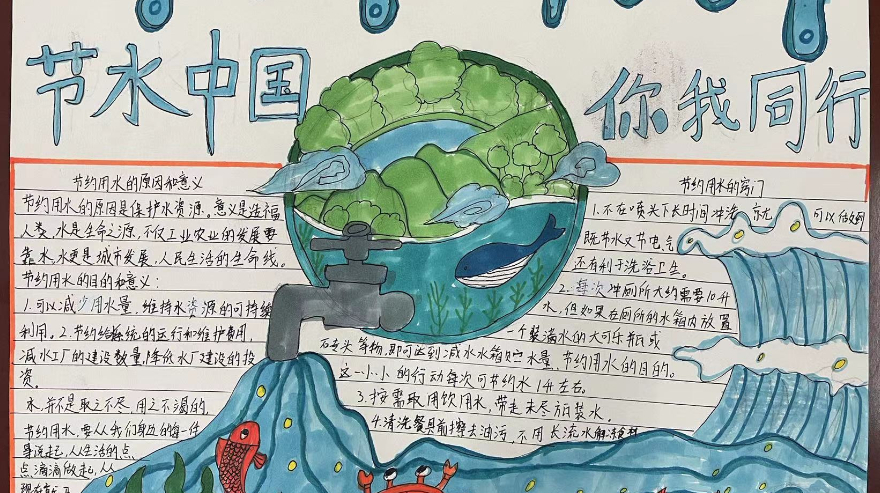 节水中国
你我同行
节约用水的原因和意义
节约用水的原因是保护水资源。意义是造福
人类,水是生命之源,不仅工业农业的发展要
靠水,水更是城市发展,人民生活的生命线。
节约用水的目的和意义:
1.可以减少用水量,维持水资源的可持续
利用。2.节约给系统的运行和维护费用,
减水工厂的建设数量,降低水厂建设的投
资。
水,并不是取之不尽,用之不竭的,
节约用水,要从我们身边的每一件
事说起,从生活的点
点滴滴做起,从
现在
节约用水的窍门
1.不在喷头下长时间冲洗 可以
既节水又节电气
还有利于洗浴卫生。
2.每次冲厕所大约需要10升
水,但如果在厕所的水箱内放置
一个装满水的大可乐瓶或
石头等物,即可达到减水水箱贮水量,节约用水的目的。
这一小小的行动每次可节约水1升左右。
3.按需取用饮用水,带走未尽瓶装水
4.清洗餐具前擦去油污,不用长流水解冻食